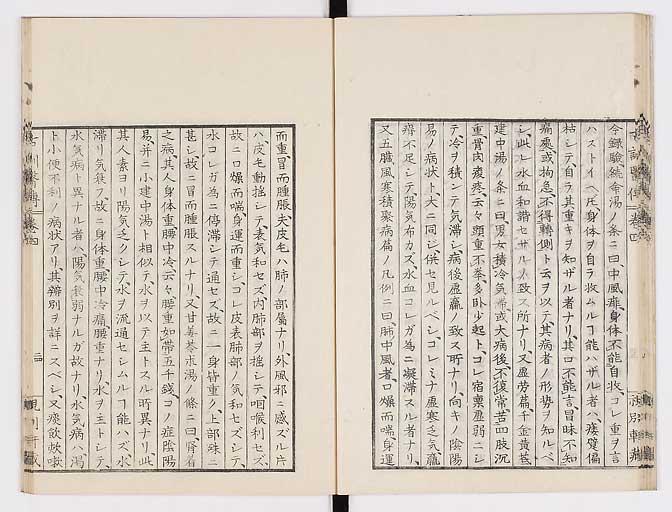 今録驗続命湯ノ条ニ曰中風痱、身体不能自收、コレ重ヲ言
ハストイヘ𪜈、身体ヲ自ラ收ムルヿ能ハザル者ハ、痿躄偏
枯シテ、自ラ其重キヲ知ザル者ナリ、其口不能言、冒昧不知
痛處、或拘急不得轉側ト云ヲ以テ、其病者ノ形勢ヲ知ルベ
シ、此レ水血和諧セザルノ致ス所ナリ、又虚労篇千金黄芪
建中湯ノ条ニ曰、男女積冷気滞、或大病後不復常、苦四肢沉
重骨肉痠疼云々、頭重不挙多卧少起ト、コレ宿稟虚弱ニシ
テ冷ヲ積ンテ気滞シ、病後虚羸ノ致ス所ナリ、向キノ陰陽
易ノ病状ト、大ニ同シ、併セ見ルベシ、コレミナ虚寒乏気羸
瘠不足シテ陽気布カズ、水血コレガ為ニ凝滞スル者ナリ、
又五臓風寒積聚病篇ノ凡例ニ曰、肺中風者、口燥而喘、身運
而重冒而腫脹、夫皮毛ハ肺ノ部屬ナリ、外風邪ニ感ズル片
ハ皮毛動揺シテ、表気和セズ、内肺部ヲ揺シテ、咽喉利セズ、
故ニ口燥而喘、身運而重シ、コレ皮表肺部ノ気和セズシテ、
水コレガ為ニ停滞シテ通セズ、故ニ一身皆重ク、上部殊ニ
甚シ、故ニ冒而腫脹スルナリ、又甘姜苓朮湯ノ條ニ曰、腎着
之病、其人身体重、腰中冷云々、腰重如帯五千錢、コノ症陰陽
易并ニ小建中湯ト相似テ、水ヲ以テ主トスル所異ナリ、此
其人素ヨリ陽気乏クシテ、水ヲ流通セシムルヿ能ハズ、水
滞リ気衰フ、故ニ身体重、腰中冷痛、腰重ナリ、水ヲ主トシテ、
水気病ト異ナル者ハ、陽気衰弱ナルガ故ナリ、水気病ハ、渇
ト小便不利ノ病状アリ、其辨別ヲ詳ニスベシ、又痰飲欬嗽